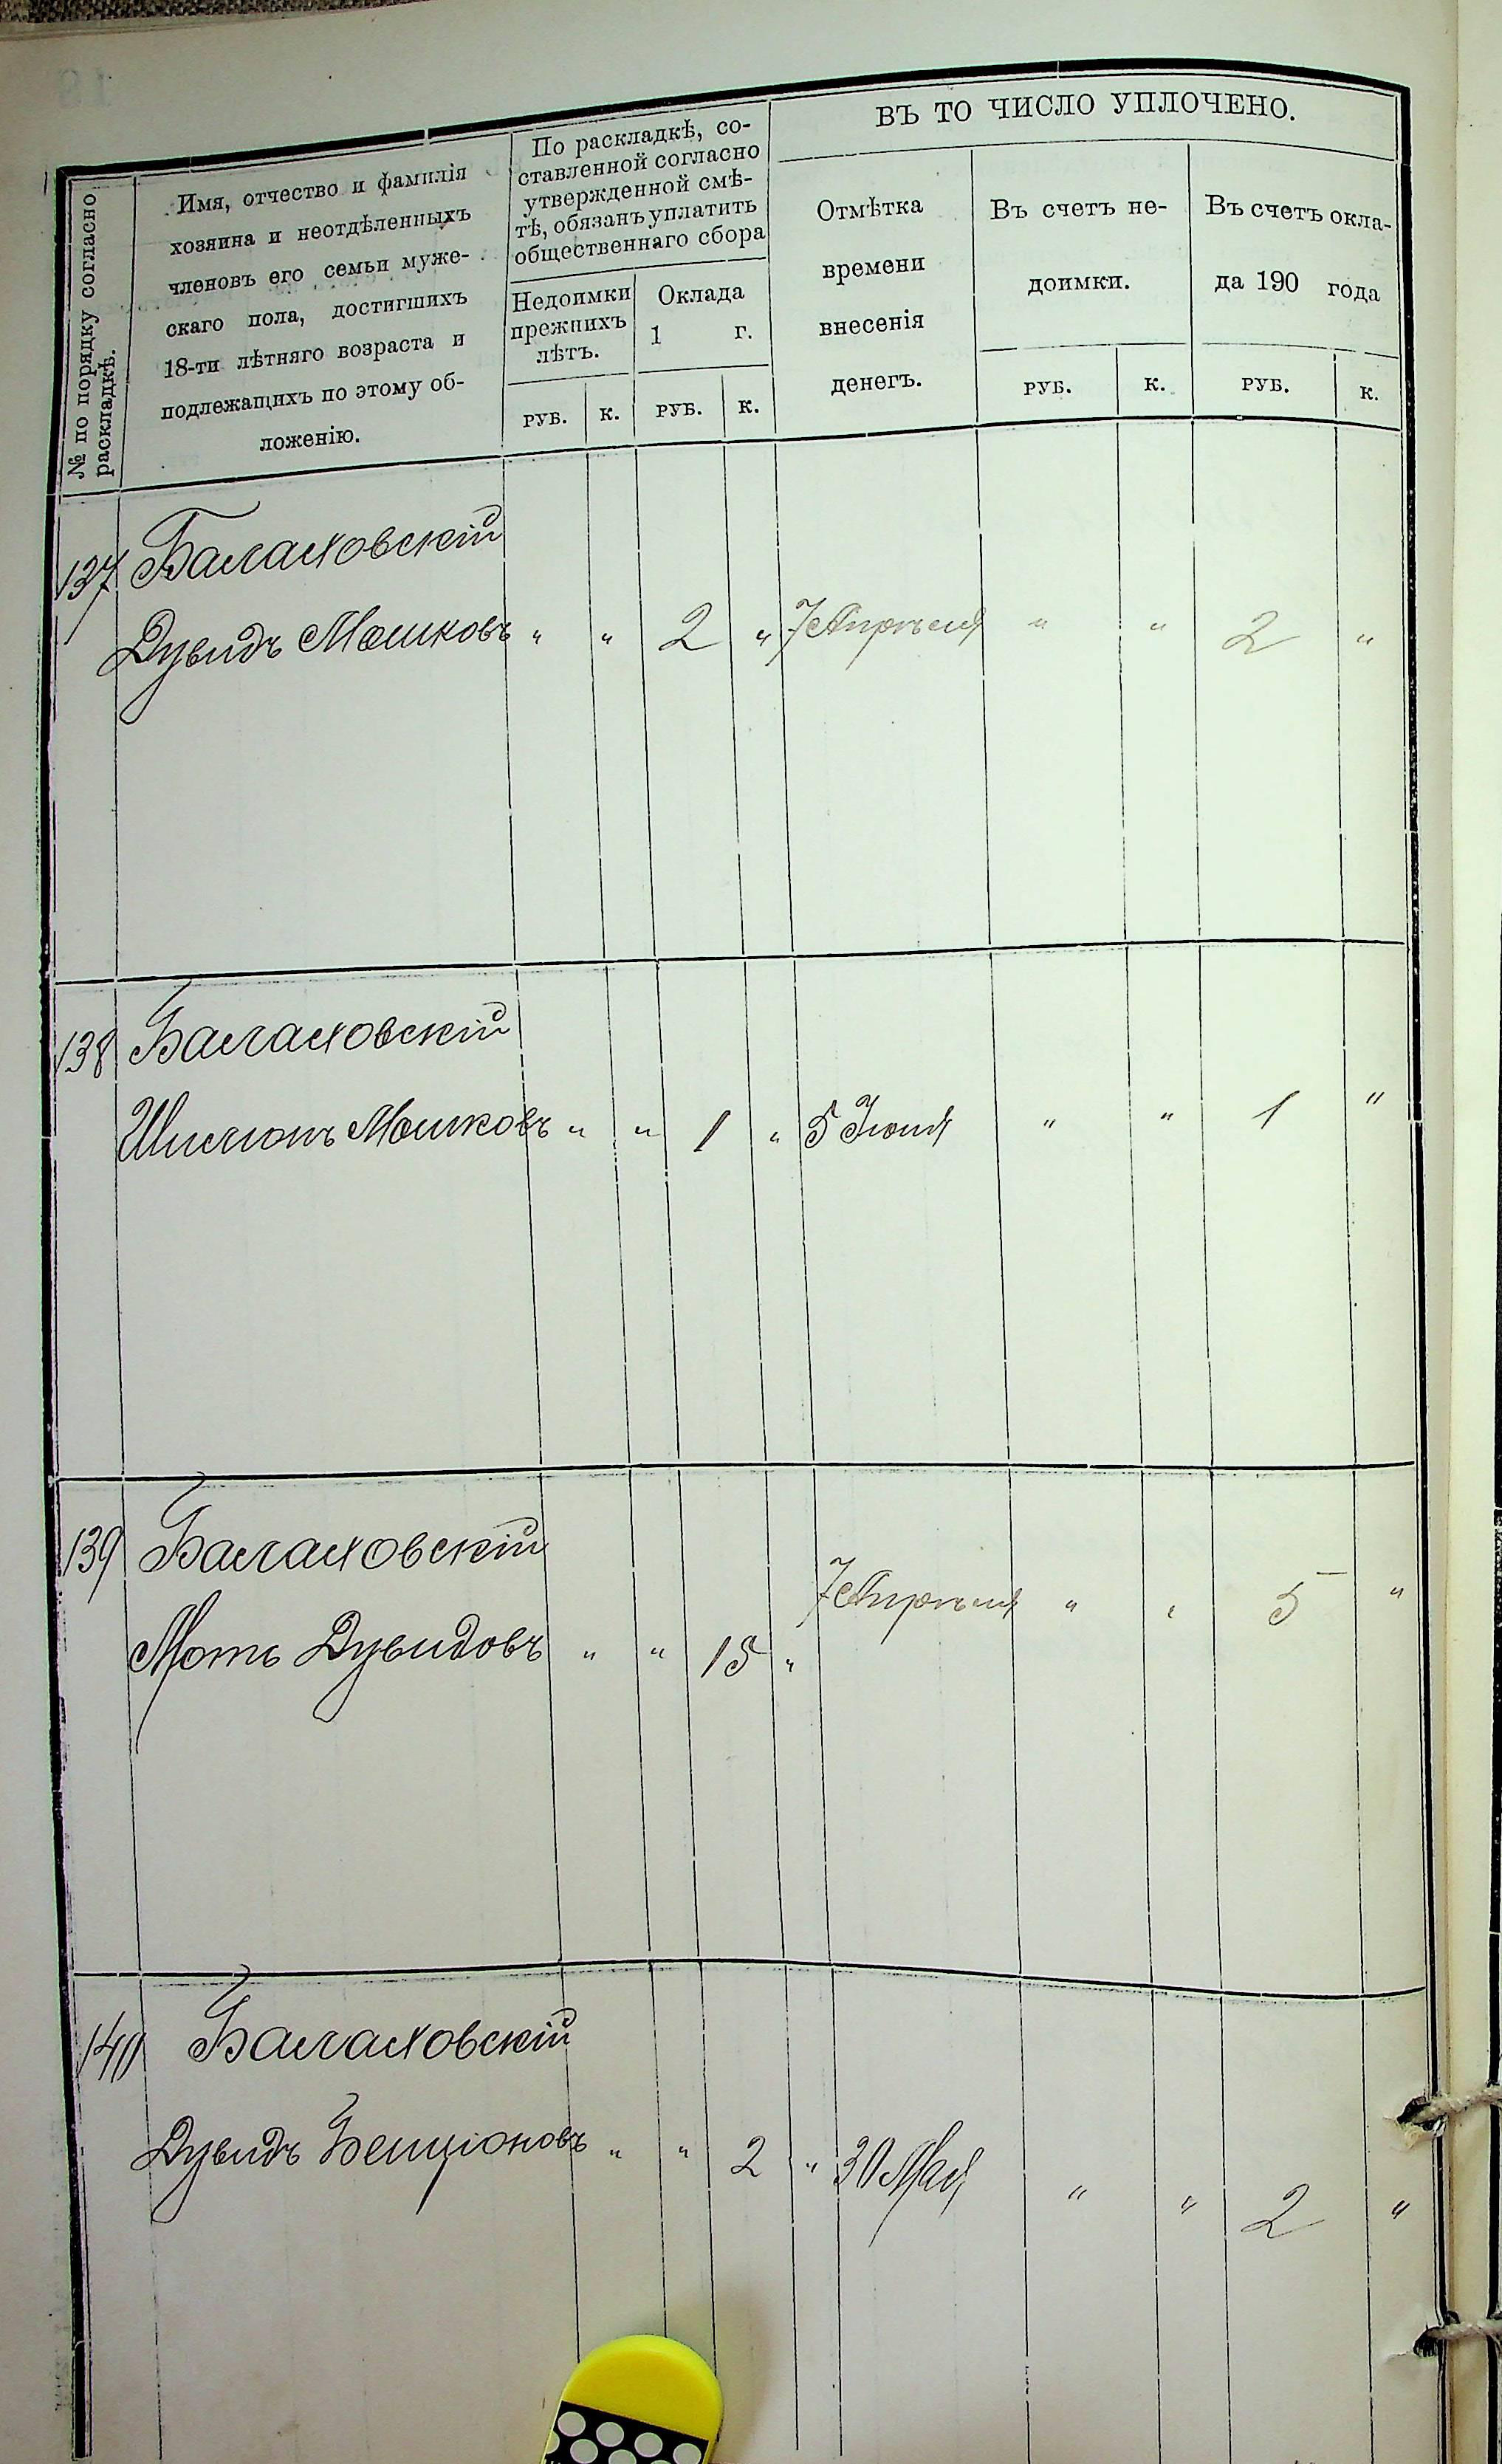 ВЪ ТО ЧИСЛО УПЛОЧЕНО.
№ по порядку согласно
раскладкѣ.
Имя, отчество и фамилія
хозяина и неотдѣленныхъ
членовъ его семьи муже-
скаго пола, достигшихъ
18-ти лѣтняго возраста и
подлежащихъ по этому об-
ложенію.
По раскладкѣ, со-
ставленной согласно
утвержденной смѣ-
тѣ, обязанъ уплатить
общественнаго сбора
Недоимки
прежнихъ
лѣтъ.
Оклада
1 г.
Отмѣтка
времени
внесенія
денегъ.
Въ счетъ не-
доимки.
Въ счетъ окла-
да 190 года
РУБ. К. РУБ. К. РУБ. К. РУБ. К.
137 Балаховскій
Дувидъ Мошковъ " " 2 " 7 Апрѣля " " 2 "
138 Балаховскій
Шлемонъ Мошковъ " " 1 " 5 Іюня " " 1 "
139 Балаховскій
Моть Дувидовъ " " 15 " 7 Апрѣля " " 5 "
140 Балаховскій
Дувидъ Бенціоновъ " " 2 " 30 Мая " " 2 "